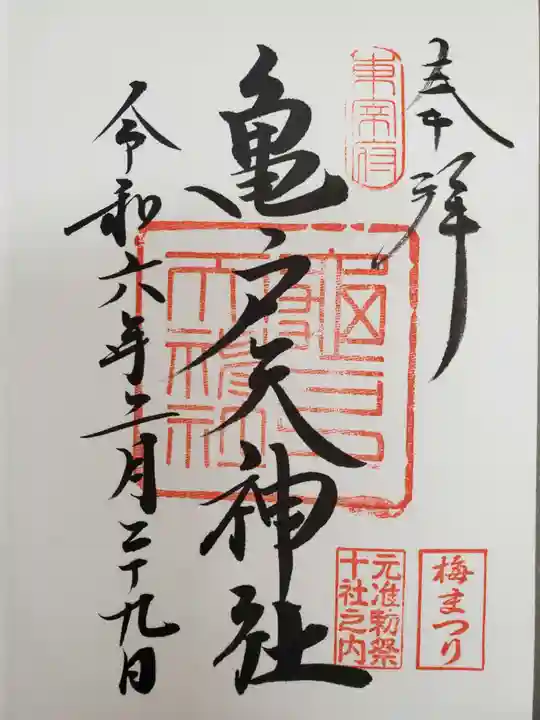 奉拝
東宰府
亀戸天神社
令和六年二月二十九日
元准勅祭
十社之内
梅まつり